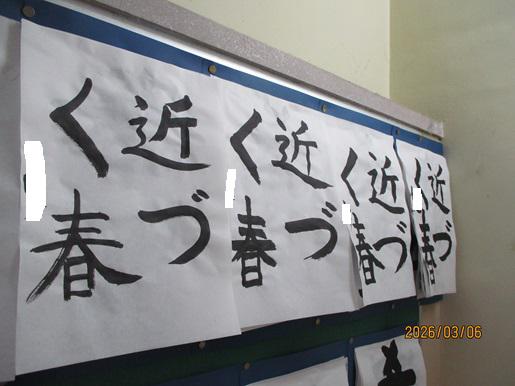 近づ
く春
近づ
く春
近づ
く春
近づ
く春
2026/03/06